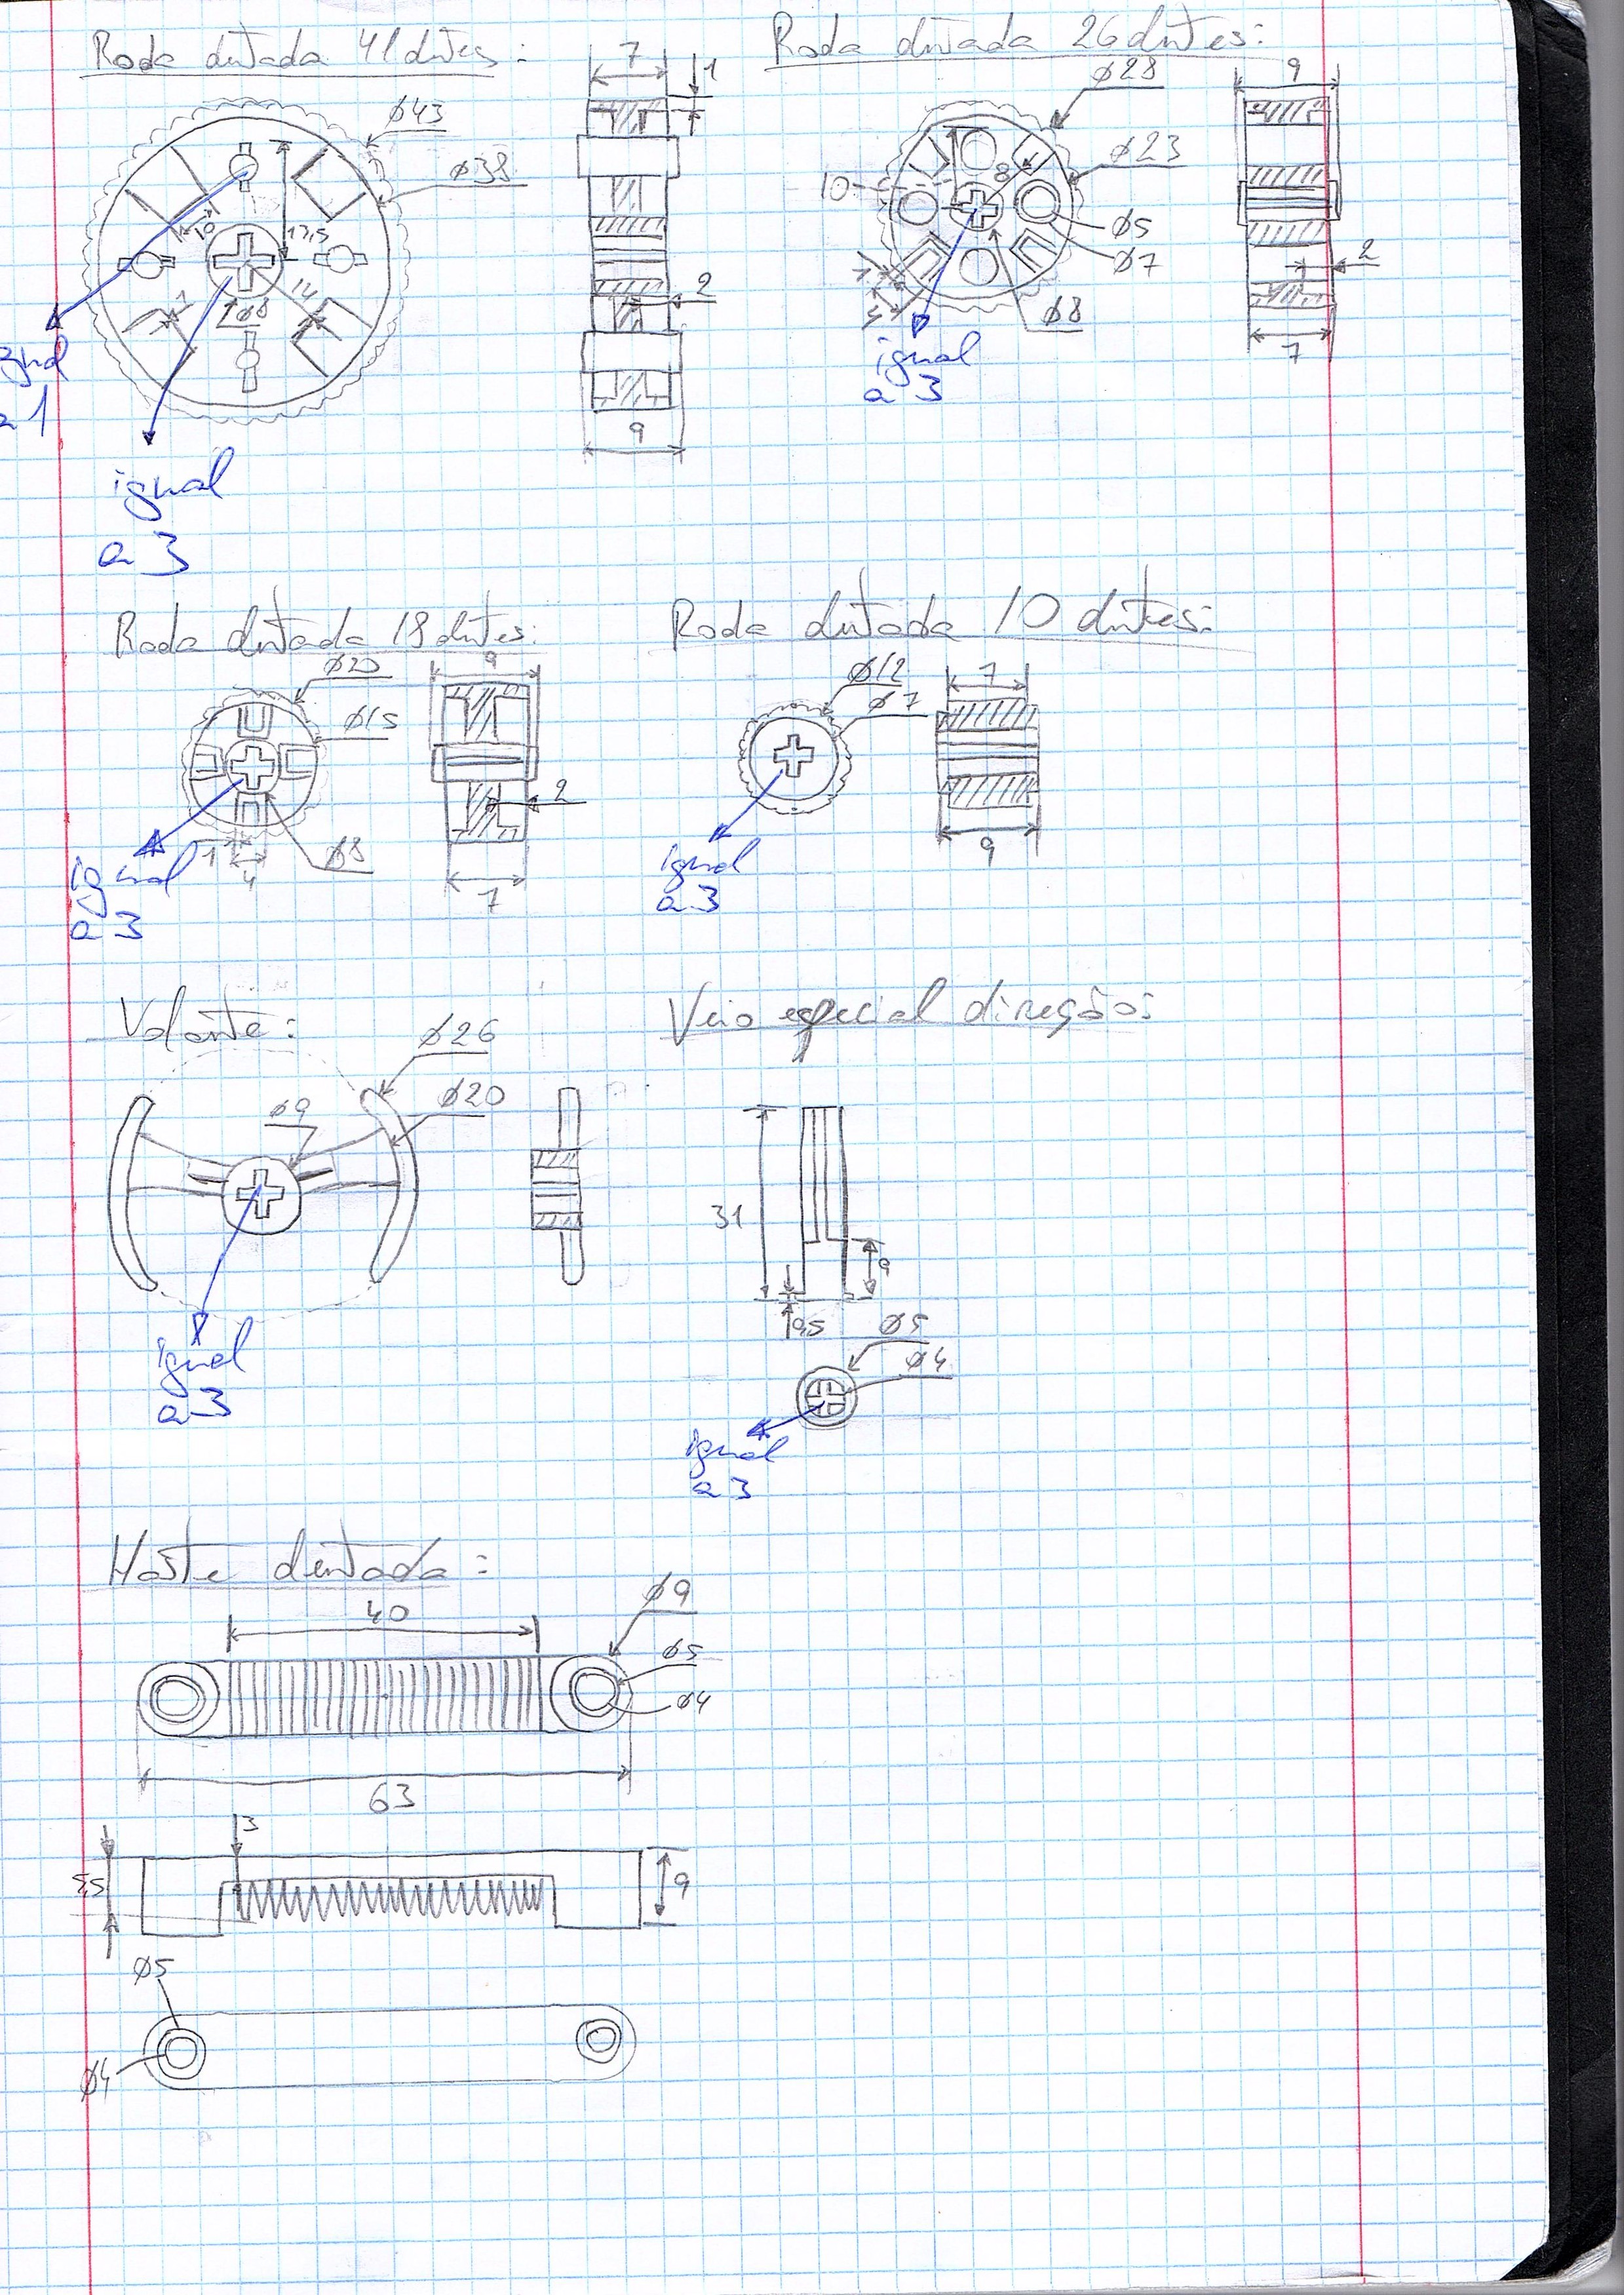 Roda dentada 41 dentes:
7
1
Ø43
Ø38
10
17,5
14
Ø8
2
9
igual
a 1
igual
a 3
Roda dentada 26 dentes:
Ø28
9
Ø23
10
8
Ø5
Ø7
2
Ø8
7
igual
a 3
Roda dentada 18 dentes:
Ø20
9
Ø15
2
1
4
Ø8
7
igual
a 3
Roda dentada 10 dentes:
Ø12
7
Ø7
9
igual
a 3
Volante:
Ø26
Ø20
Ø9
igual
a 3
Veio especial direção:
31
9
0,5
Ø5
Ø4
igual
a 3
Haste dentada:
40
Ø9
Ø5
Ø4
63
3
5,5
9
Ø5
Ø4